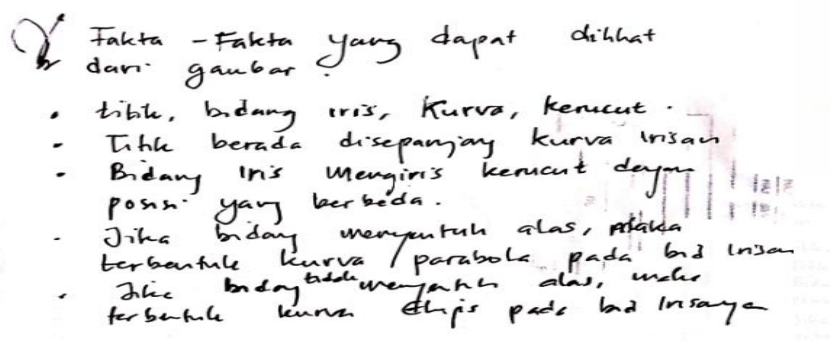 Fakta - Fakta yang dapat dilihat
dari gambar :
• titik, bidang iris, Kurva, kerucut .
- Titik berada disepanjang kurva irisan
- Bidang Iris Mengiris kerucut dengan
posisi yang berbeda .
- Jika bidang menyentuh alas, maka
terbentuk kurva / parabola pada bid Irisan
• Jika bidang tidak menyentuh alas, maka
terbentuk kurva Elips pada bid Irisanya